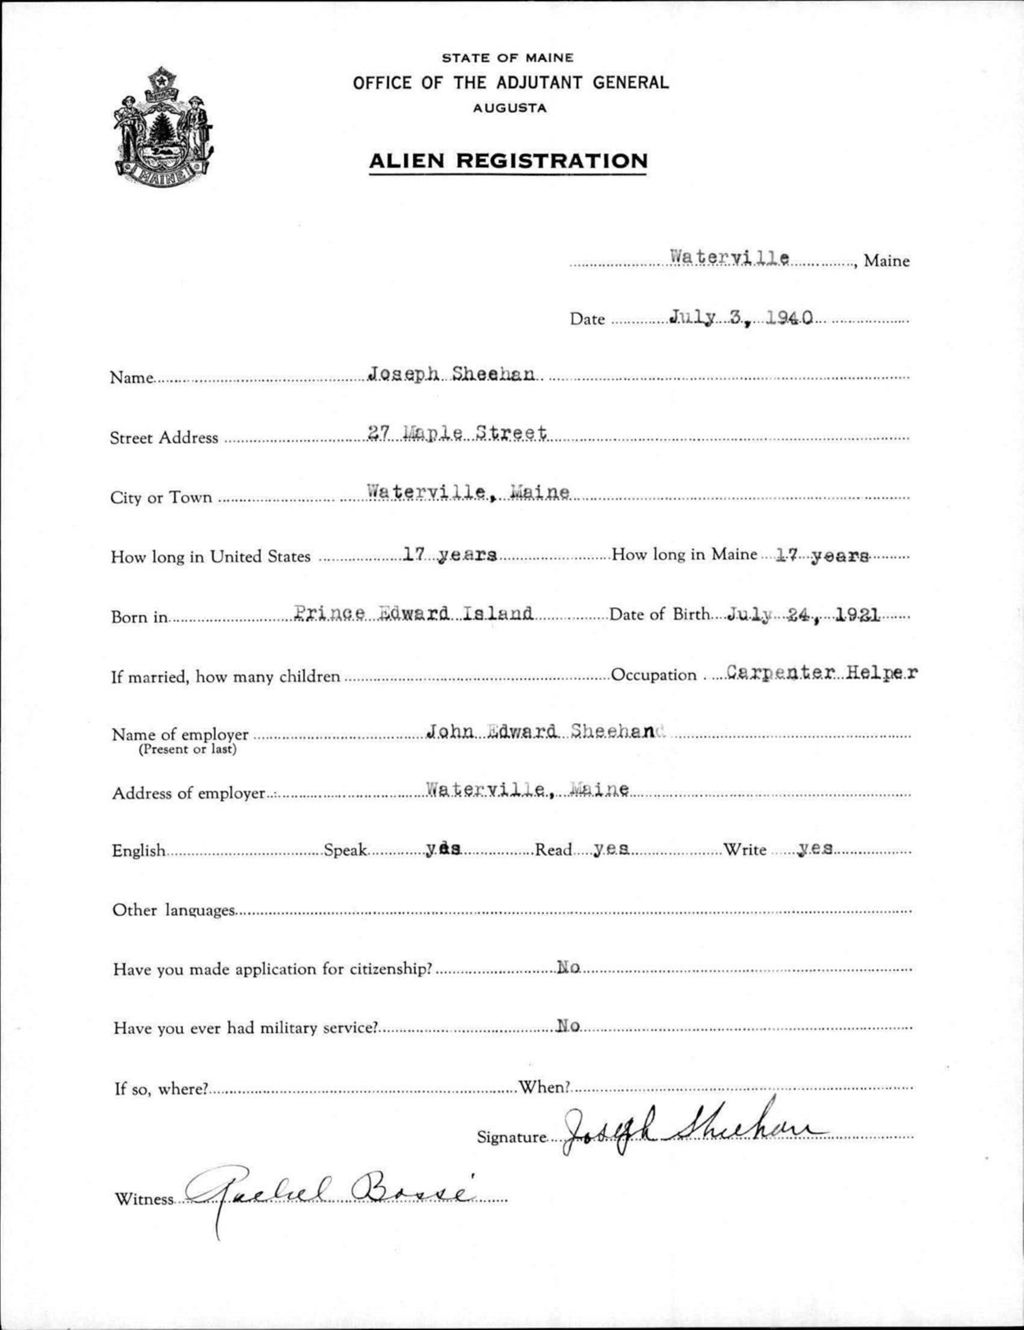 STATE OF MAINE
OFFICE OF THE ADJUTANT GENERAL
AUGUSTA
ALIEN REGISTRATION
MAINE
Waterville, Maine
Date July 3, 1940
Name Joseph Sheehan
Street Address 27 Maple Street
City or Town Waterville, Maine
How long in United States 17 years How long in Maine 17 years
Born in Prince Edward Island Date of Birth July 24, 1921
If married, how many children Occupation Carpenter Helper
Name of employer John Edward Sheehan
(Present or last)
Address of employer Waterville, Maine
English Speak yes Read yes Write yes
Other languages
Have you made application for citizenship? No
Have you ever had military service? No
If so, where? When?
Signature Joseph Sheehan
Witness Rachel Bossé